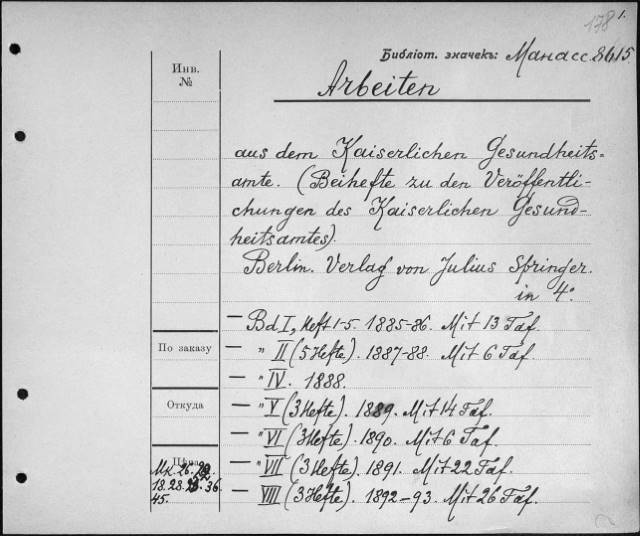 178 1.
Библіот. значекъ: Манасс. 8615
Инв.
№
Arbeiten
aus dem Kaiserlichen Gesundheits=
amte. (Beihefte zu den Veröffentli-
chungen des Kaiserlichen Gesund-
heitsamtes).
Berlin. Verlag von Julius Springer.
in 4°.
— Bd. I, Heft 1-5. 1885-86. Mit 13 Taf.
По заказу
— „ II (5 Hefte). 1887-88. Mit 6 Taf.
— „ IV. 1888.
Откуда
— „ V (3 Hefte). 1889. Mit 14 Taf.
— „ VI (3 Hefte). 1890. Mit 6 Taf.
Цѣна
— „ VII (3 Hefte). 1891. Mit 22 Taf.
Мк. 26.
18. 28. 36.
45.
— VIII (3 Hefte). 1892-93. Mit 26 Taf.